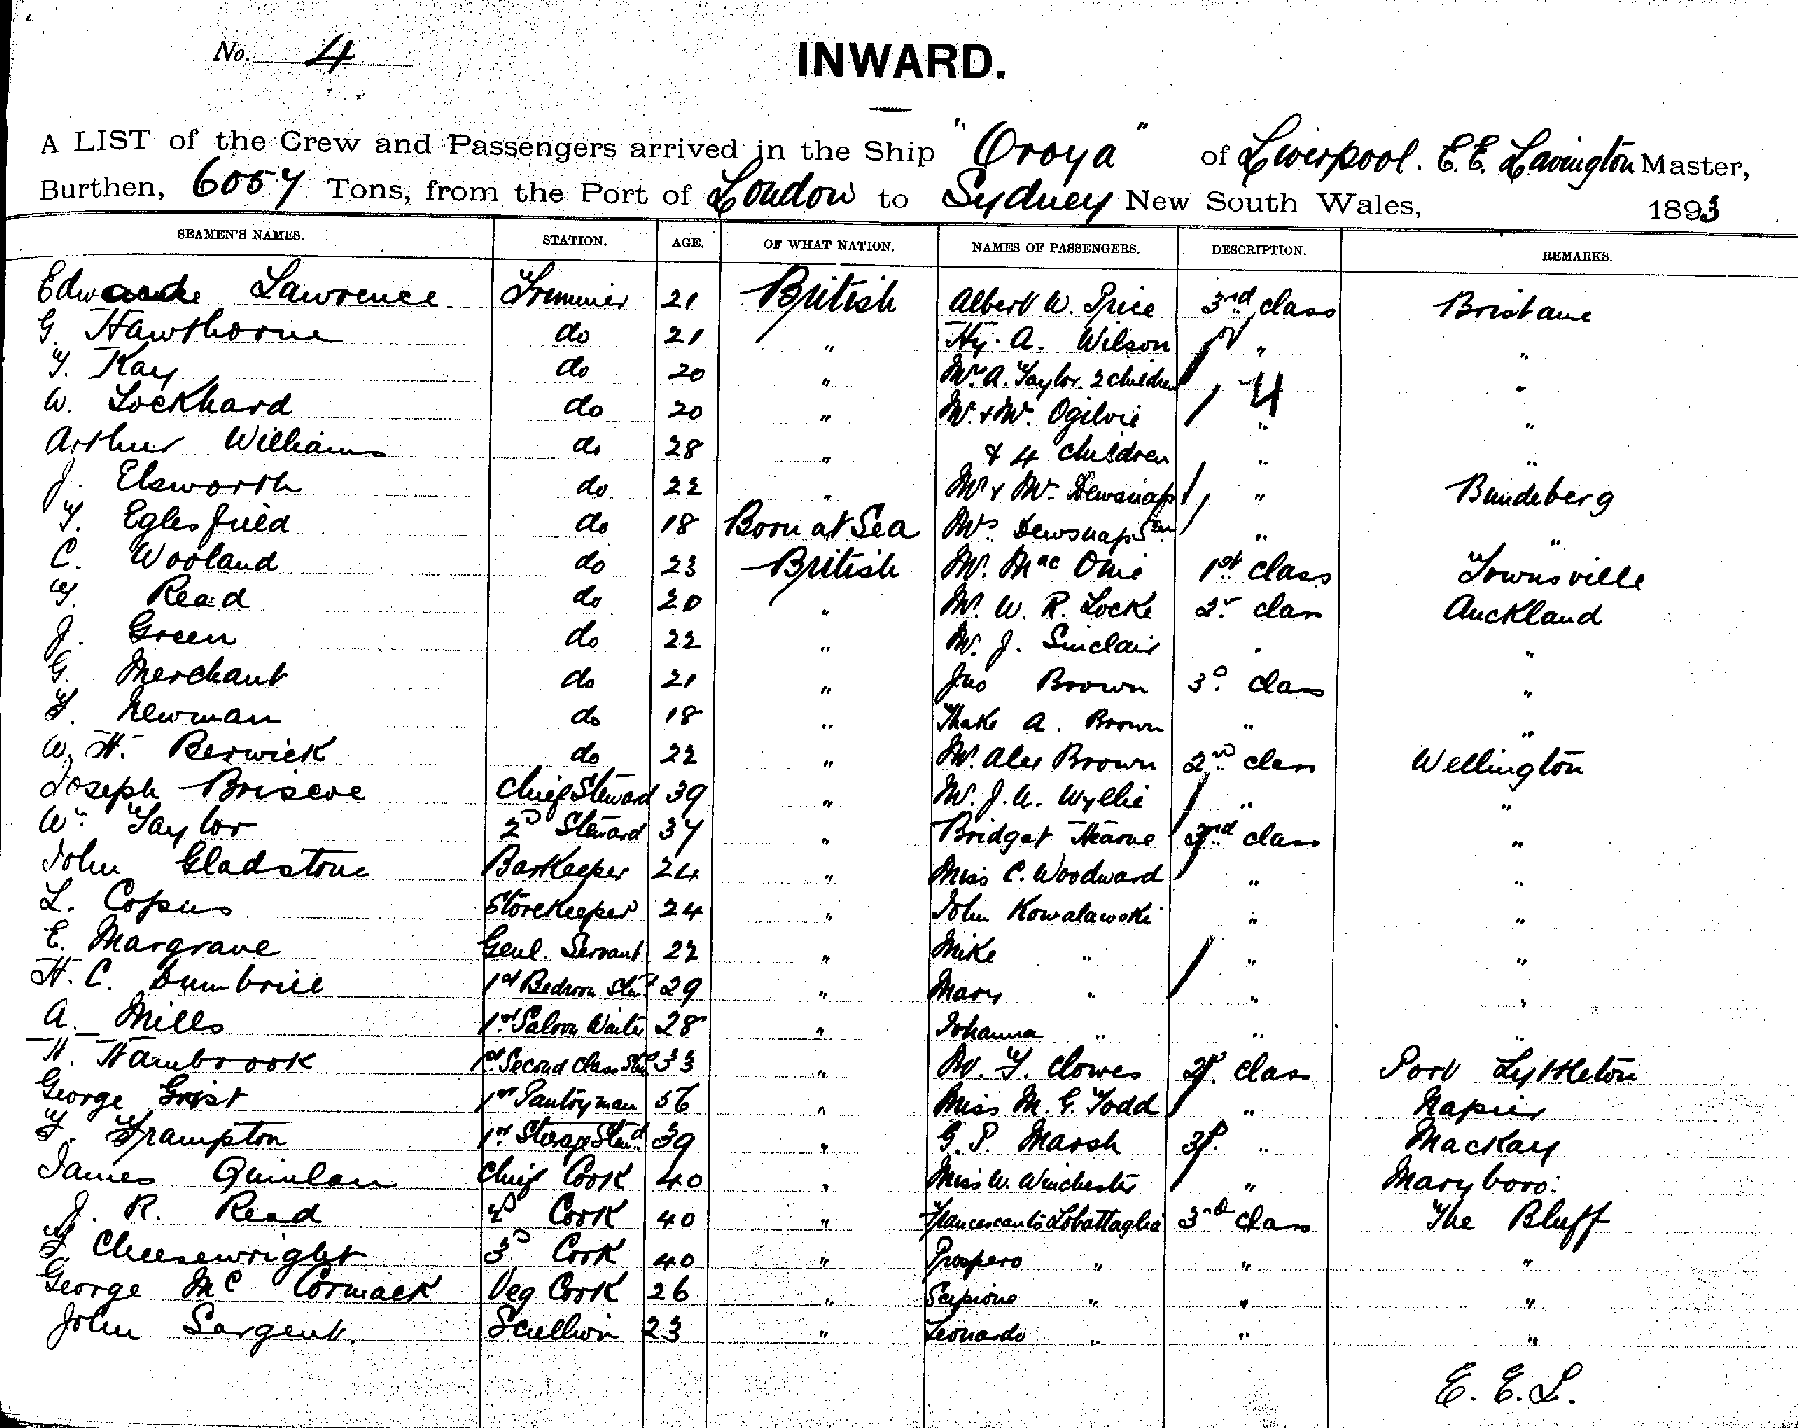 No. 4
INWARD.
A LIST of the Crew and Passengers arrived in the Ship "Oroya" of Liverpool. E. E. Lavington Master,
Burthen, 6057 Tons, from the Port of London to Sydney New South Wales, 1893
SEAMEN'S NAMES. STATION. AGE. OF WHAT NATION. NAMES OF PASSENGERS. DESCRIPTION. REMARKS.
Lawrence Trimmer 21 British Albert W. Price 3rd class Brisbane
G. Hawthorne do 21 " Hy. A. Wilson " "
T. Kay do 20 " A. Taylor 2 children 4 "
W. Lockhard do 20 " Mr & Mrs. Ogilvie " "
Arthur Williams do 28 " & 4 children " "
J. Elsworth do 22 " Mr & Mrs. Dewsnap " Bundeberg
T. Eglesfield do 18 Born at Sea Mrs Dewsnap Senr " "
C. Wooland do 23 British Mr. Mac 1st class Townsville
T. Read do 20 " Mr. W. R. Locke 2d class Auckland
J. Green do 22 " Mr. J. Sinclair " "
G. Merchant do 21 " Jno Brown 3d class "
F. Newman do 18 " A. Brown " "
W. H. Berwick do 22 " Mr. Alex Brown 2nd class Wellington
Joseph Briscoe Chief Steward 39 " Mr. J. A. Wyllie " "
Wm Taylor 2d Steward 37 " Bridget Hearne 3rd class "
John Gladstone Barkeeper 24 " Miss C. Woodward " "
L. Copus Storekeeper 24 " John Kowalawski " "
E. Margrave Genl. Servant 22 " Mike " " "
H. C. Dumbrill 1st Bedroom Std 29 " Mary " " "
A. Mills 1st Saloon Waiter 28 " Johanna " " "
H. Hambrook 1st Second Class Std 33 " Clowes 2d class Port Lyttleton
George Grist 1st Pantryman 56 " Miss M. E. Todd " Napier
F. Frampton 1st Steward 39 " G. P. Marsh 3d " Mackay
James Quinlan Chief Cook 40 " Miss W. Winchester " Maryboro:
J. R. Read 2d Cook 40 " Lobattaglia 3rd class The Bluff
Cheesewright 3d Cook 40 " Prospero " " "
George McCormack Veg Cook 26 " Scipione " " "
John Sargent. Scullion 23 " Leonardo " " "
E. E. L.